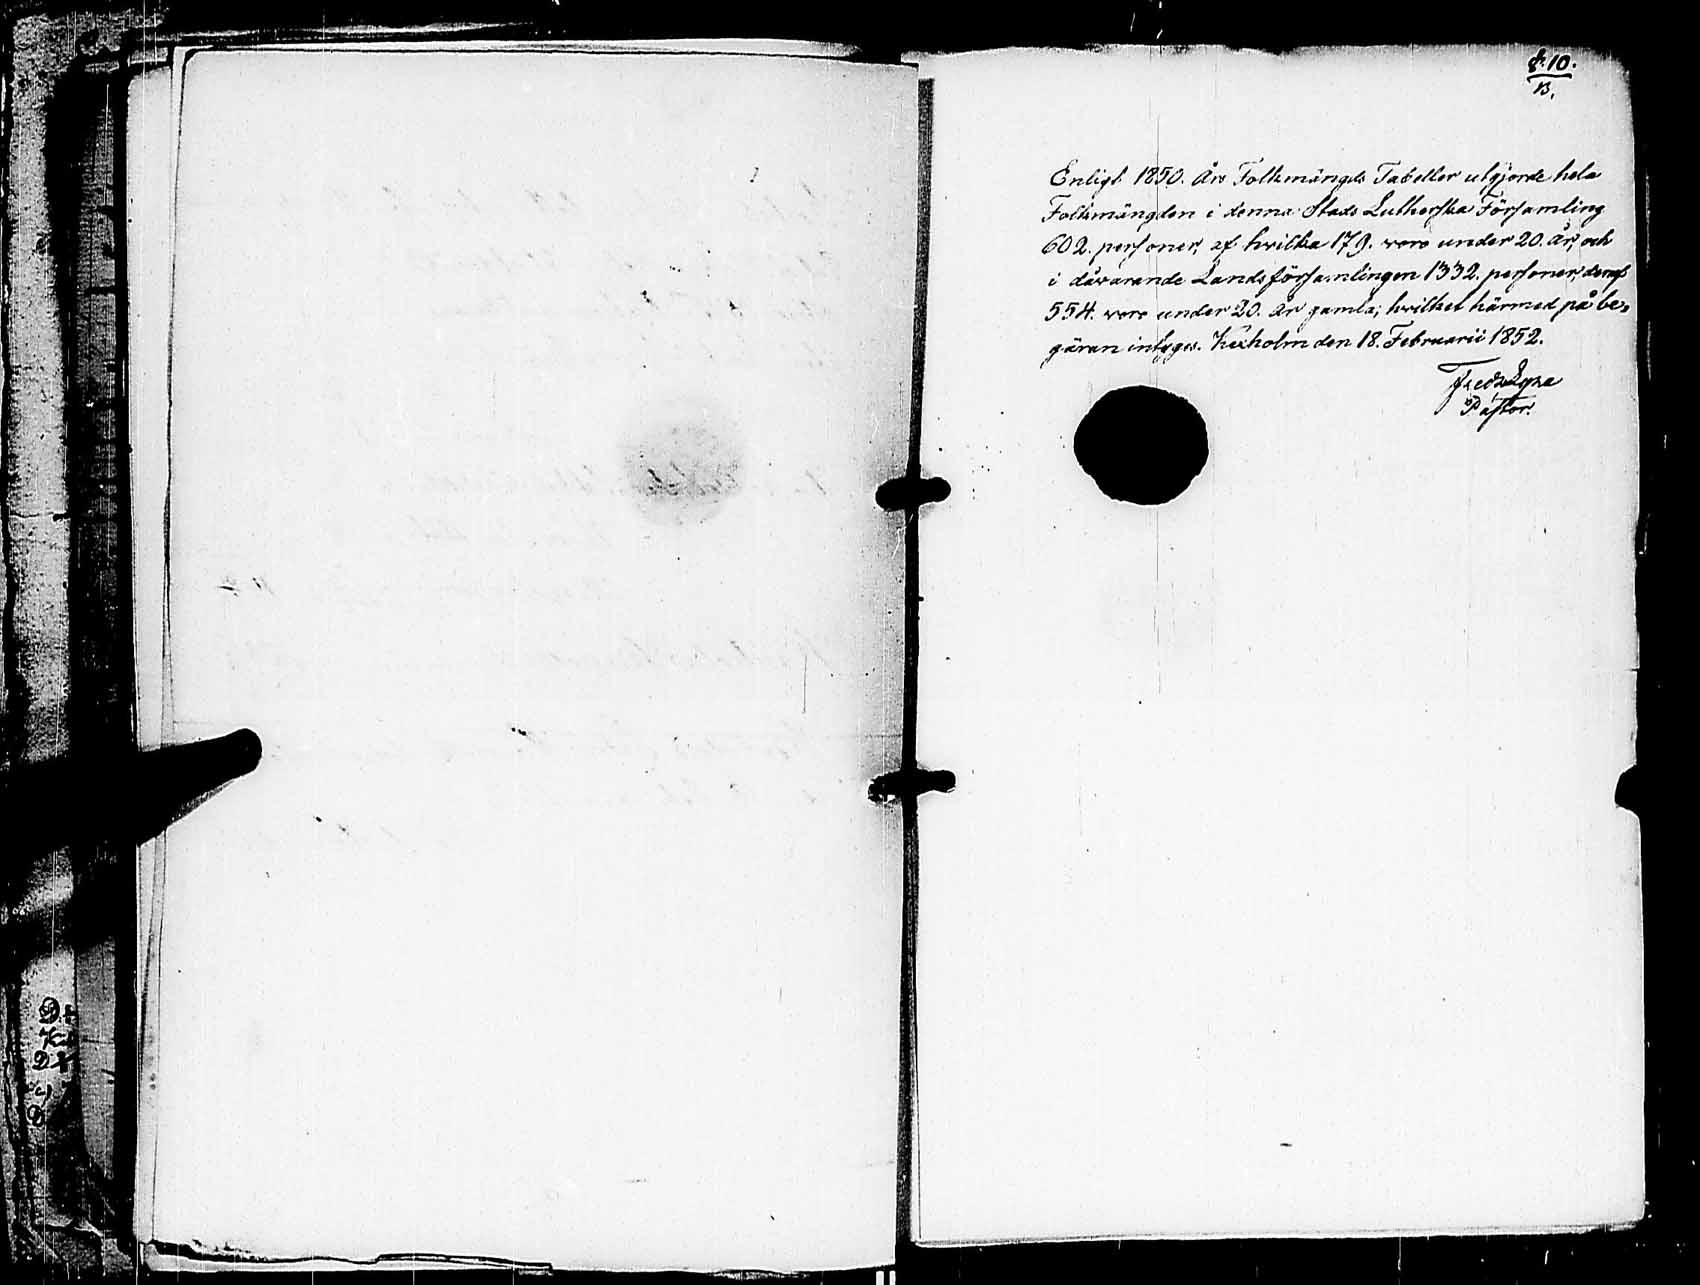 §.10.
B.
Enligt 1850. Års Folkmängds Tabeller utgjorde hela
Folkmängden i denna Stads Lutherska Församling
602. personer, af hvilka 179. voro under 20. år, och
i dåvarande Landsförsamlingen 1332. personer, deraf
554. voro under 20. år gamla; hvilket härmed på be-
gäran intygas. Kexholm den 18. Februarii 1852.
Pastor.